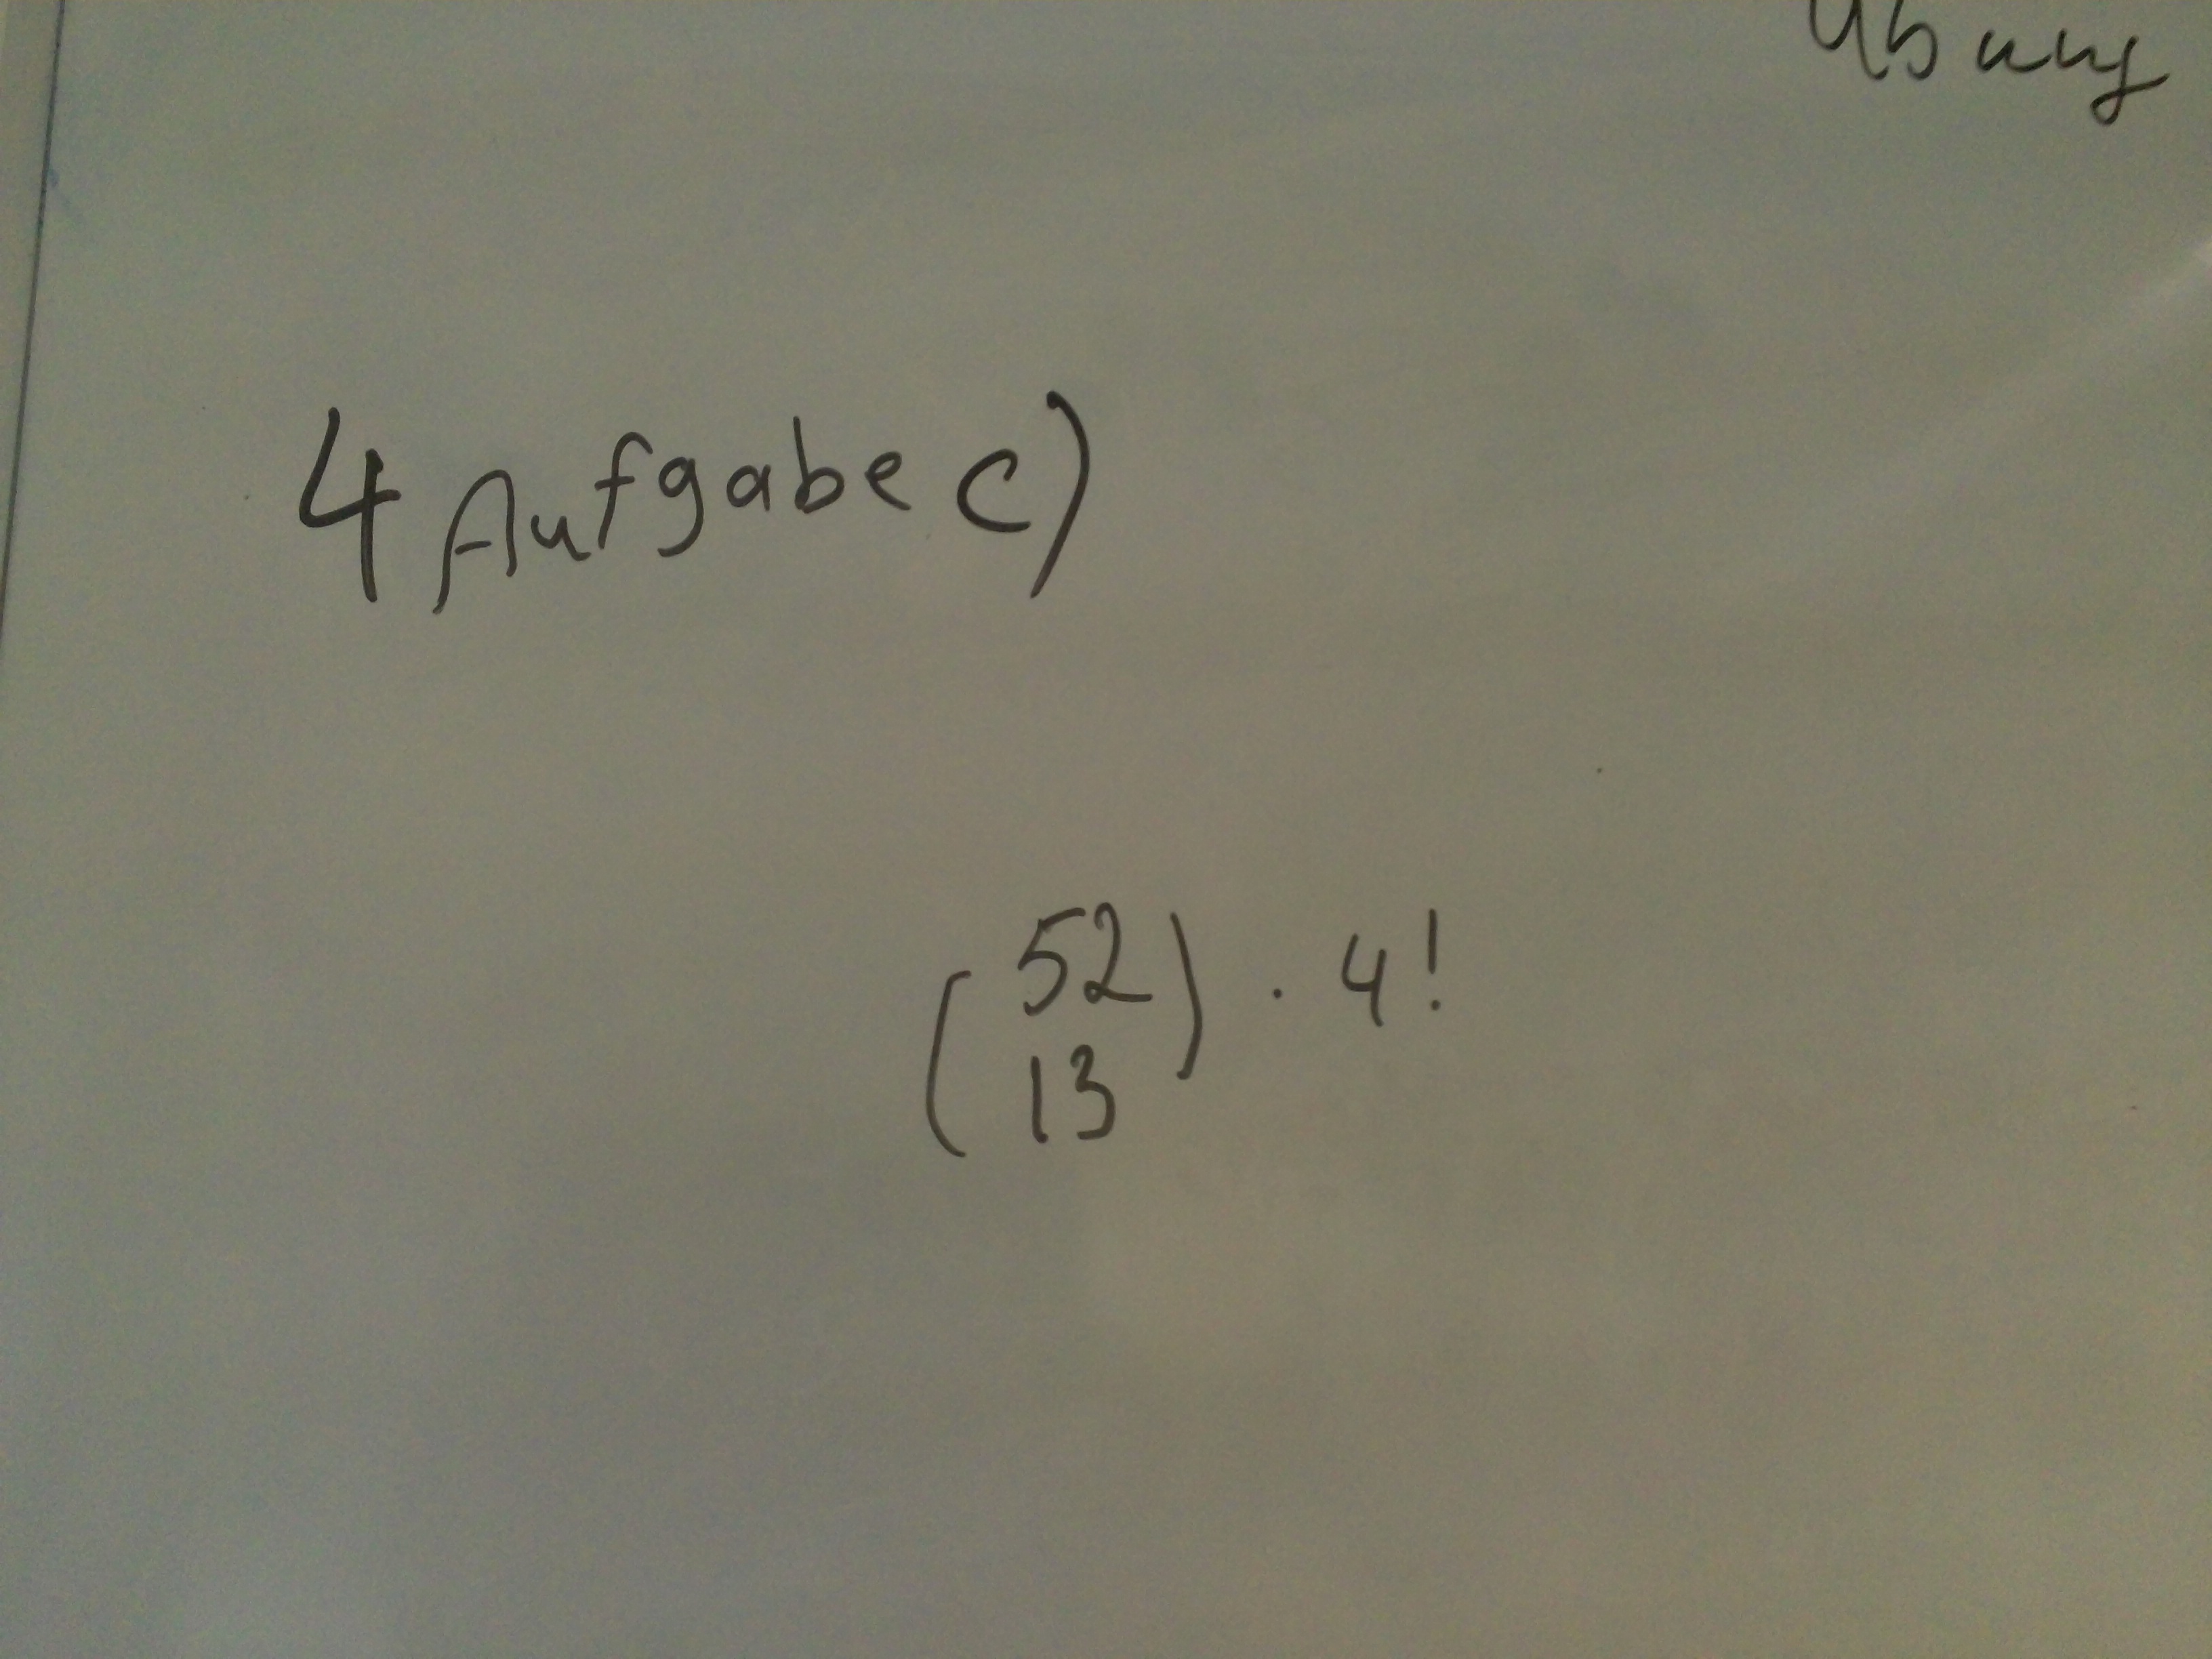 Übung
4 Aufgabe c)
(52
13) · 4!